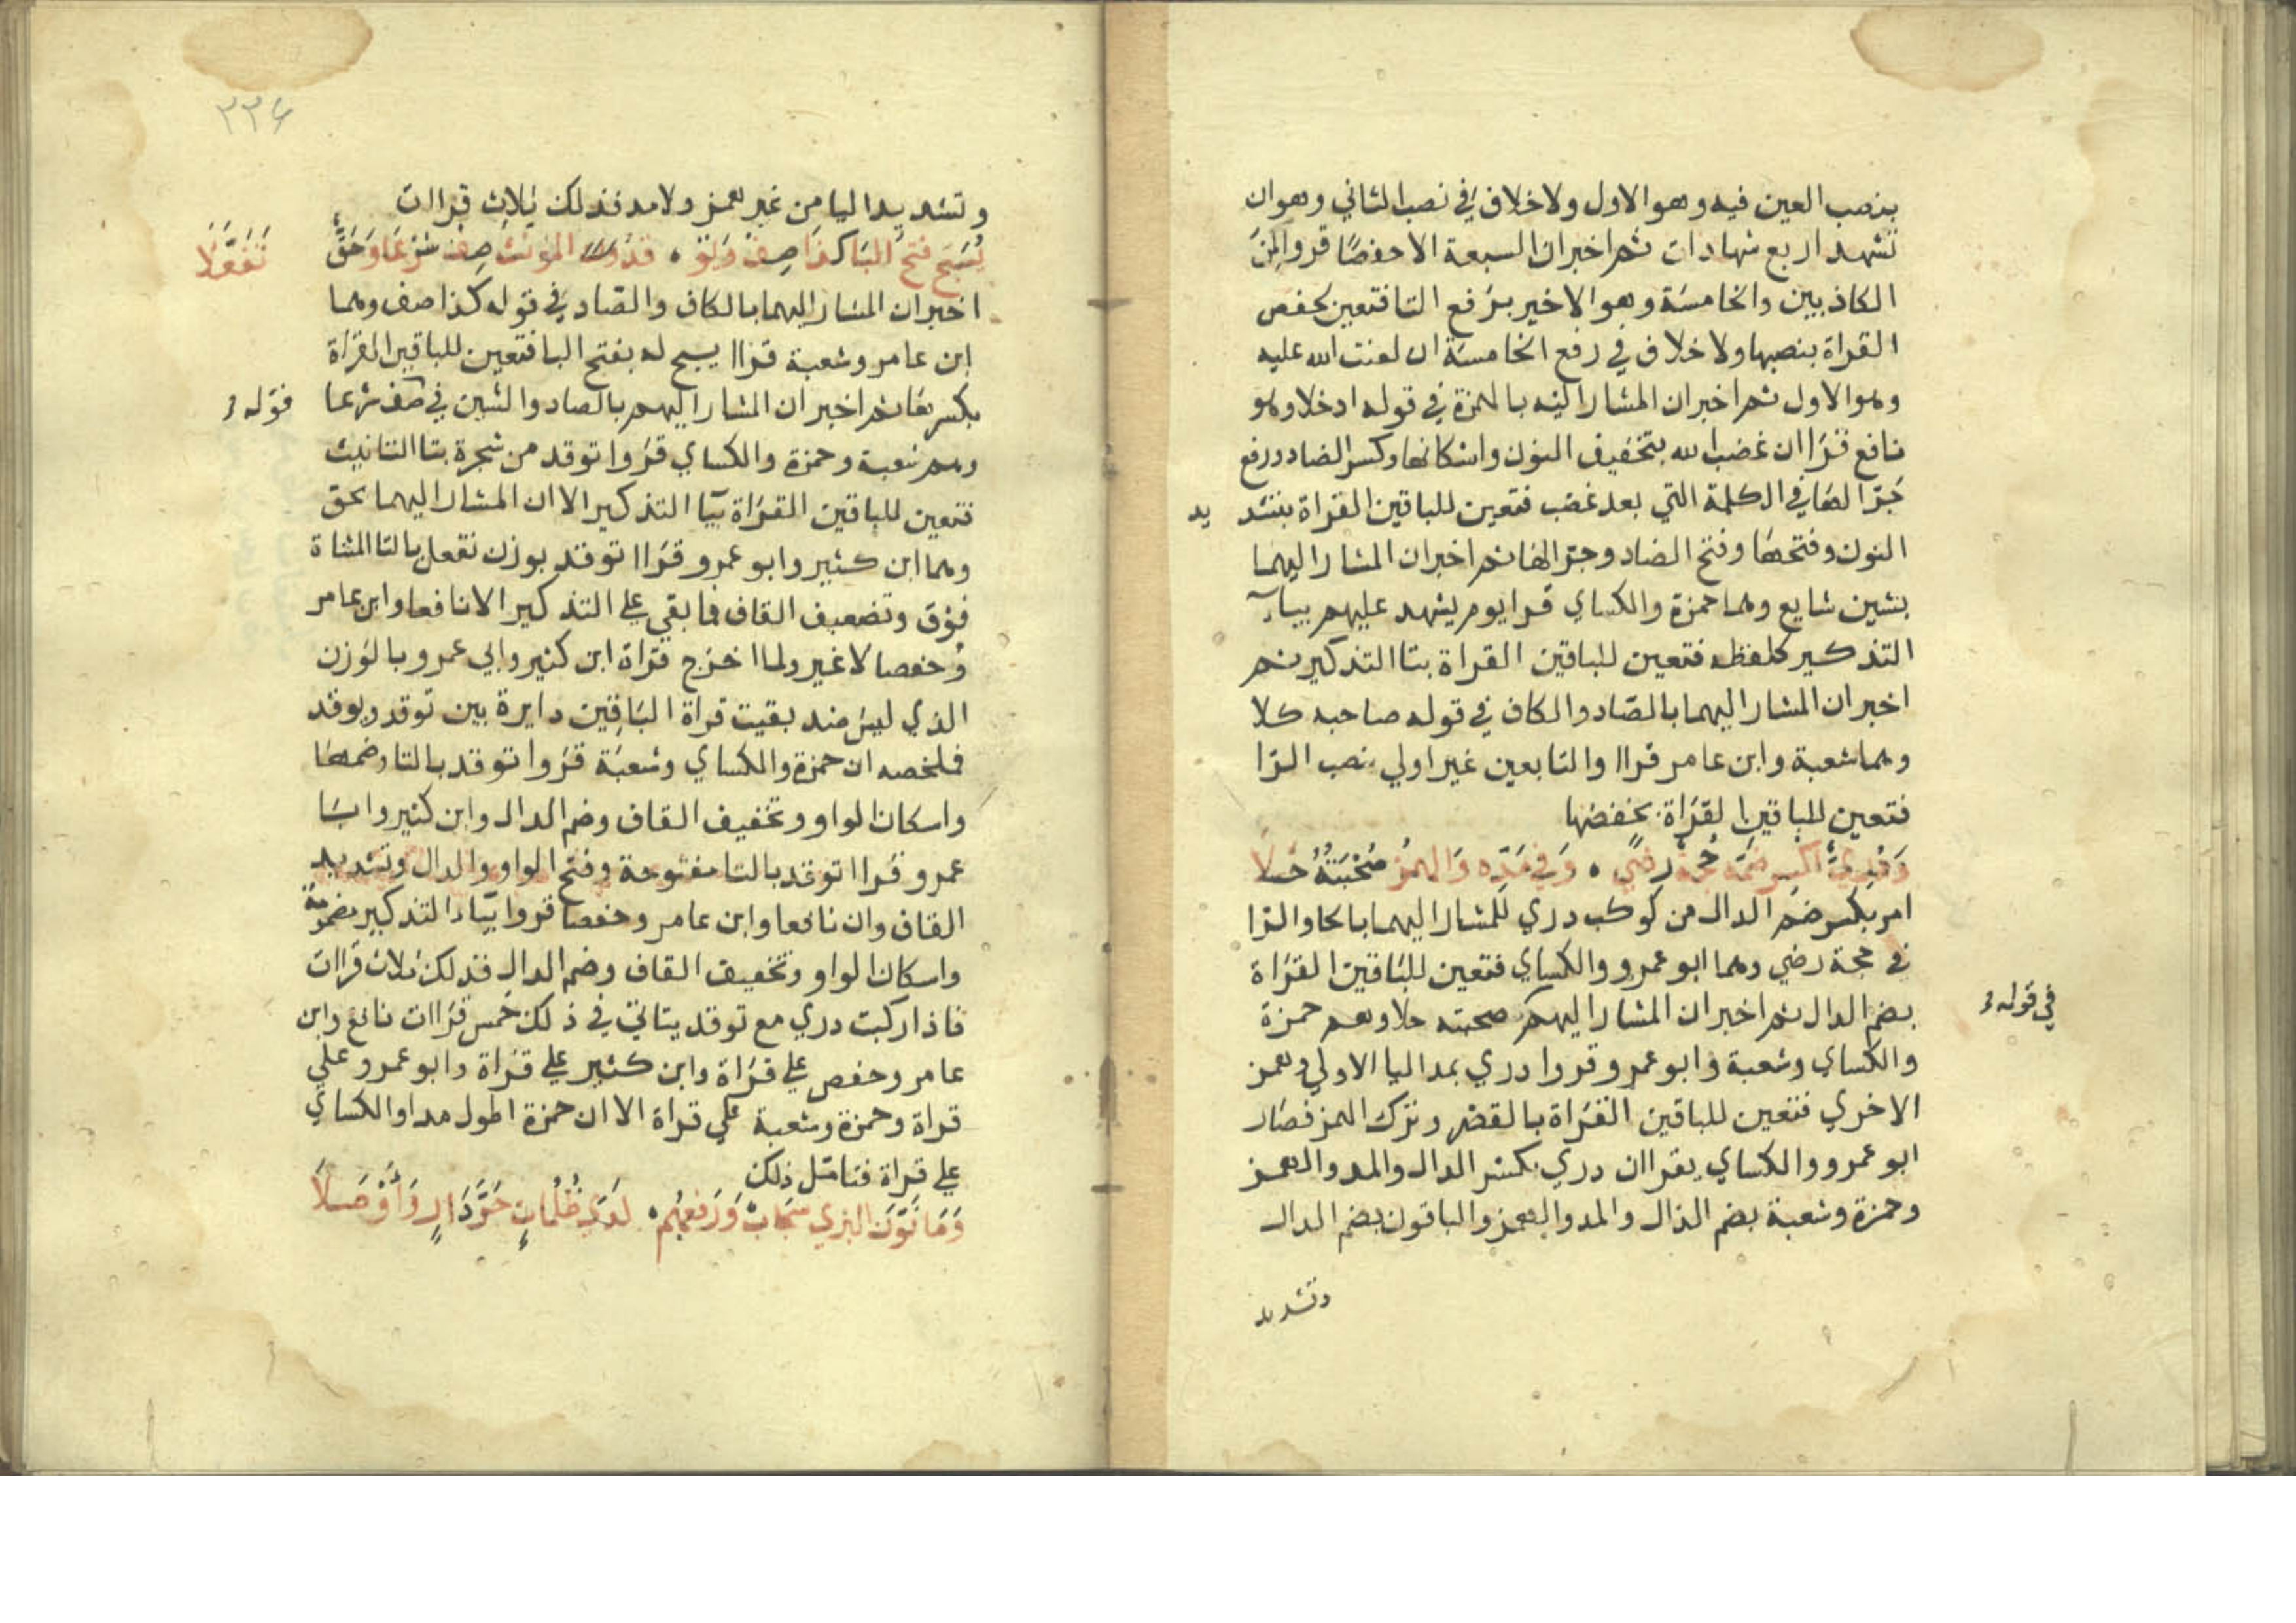 بنصب العين فيه وهو الاول ولا خلاف في نصب الثاني وهو ان
تشهد اربع شهادات ثم اخبر ان السبعة الا حفصا قروا لمن
الكاذبين والخامسة وهو الاخير برفع التا فتعين لحفص
القراة بنصبها ولا خلاف في رفع الخامسة ان لعنت الله عليه
وهو الاول ثم اخبر ان المشار اليه بالهمزة في قوله ادخلا وهو
نافع قرا ان غضب الله بتخفيف النون واسكانها وكسر الضاد ورفع
جر الها في الكلمة التي بعد غضب فتعين للباقين القراة بتشد يد
النون وفتحها وفتح الضاد وجر الها ثم اخبر ان المشار اليهما
بشين شايع وهما حمزة والكساي قرا يوم يشهد عليهم بياء
التذكير كلفظه فتعين للباقين القراة بتا التذكير ثم
اخبر ان المشار اليهما بالصاد والكاف في قوله صاحبه كلا
وهما شعبة وابن عامر قراا والتابعين غير اولي بنصب الرا
فتعين للباقين القراة بخفضها
وَدُرِّيٌّ اكسر ضمه حجة رضي ، وَفي مَدّه وَالهمزُ صُحْبَتُهُ حَلاَ
امر بكسر ضم الدال من كوكب دري للمشار اليهما بالحا والرا
في حجة رضي وهما ابو عمرو والكساي فتعين للباقين القراة
بضم الدال ثم اخبر ان المشار اليهم صحبته حلا وهم حمزة
في قوله
والكساي وشعبة وابو عمرو قروا دري بمد اليا الاولي وهمز
الاخري فتعين للباقين القراة بالقصر وترك الهمز فصار
ابو عمرو والكساي يقراان دري بكسر الدال والمد والهمز
وحمزة وشعبة بضم الدال والمد والهمز والباقون بضم الدال
وتشديد
٢٣٤
وتشديد اليا من غير همز ولا مد فذلك ثلاث قراات
يُسَبَّح فتحُ البَا كذا صِف وَتوقد المؤنث صِف شَرْعًا وَحَقٌّ تَفَعَّلاَ
اخبر ان المشار اليهما بالكاف والصاد في قوله كذا صف وهما
ابن عامر وشعبة قراا يسبح له بفتح البا فتعين للباقين القراة
بكسرها ثم اخبر ان المشار اليهم بالصاد والشين في صف شرعا
قوله
وهم شعبة وحمزة والكساي قروا توقد من شجرة بتا التانيث
فتعين للباقين القراة بيا التذكير الا ان المشار اليهما بحق
وهما ابن كثير وابو عمرو قراا توقد بوزن تفعل بالتا المثناة
فوق وتضعيف القاف فما بقي علي التذكير الا نافعا وابن عامر
وحفصا لا غير ولما اخرج قراة ابن كثير وابي عمرو بالوزن
الذي ليس ضد بقيت قراة الباقين دايرة بين توقد ويوقد
فلخصه ان حمزة والكساي وشعبة قروا توقد بالتا وضمها
واسكان الواو وتخفيف القاف وضم الدال وابن كثير وابا
عمرو قراا توقد بالتا مفتوحة وفتح الواو والدال وتشديد
القاف وان نافعا وابن عامر وحفصا قروا بياء التذكير مضمومة
واسكان الواو وتخفيف القاف وضم الدال فذلك ثلاث قراات
فاذا ركبت دري مع توقد يتاتي في ذلك خمس قراات نافع وابن
عامر وحفص علي قراة وابن كثير علي قراة وابو عمرو علي
قراة وحمزة وشعبة علي قراة الا ان حمزة اطول مدا والكساي
علي قراة فتامل ذلك
وَمَا نَوَّنَ البزي سَحَابٌ وَرَفعهُم ، لَدَي ظُلُماتٍ جَرَّ دَارٍ وَأَوْصَلاَ